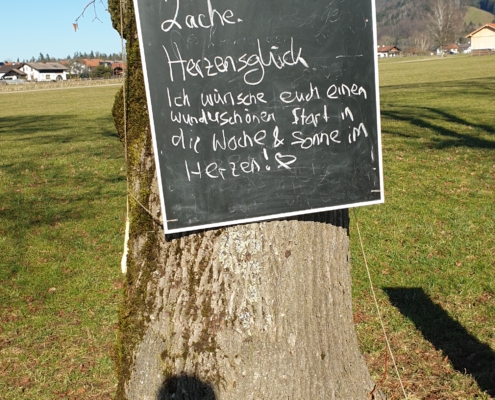 Lache.
Herzensglück
Ich wünsche euch einen
wunderschönen Start in
die Woche & Sonne im
Herzen!